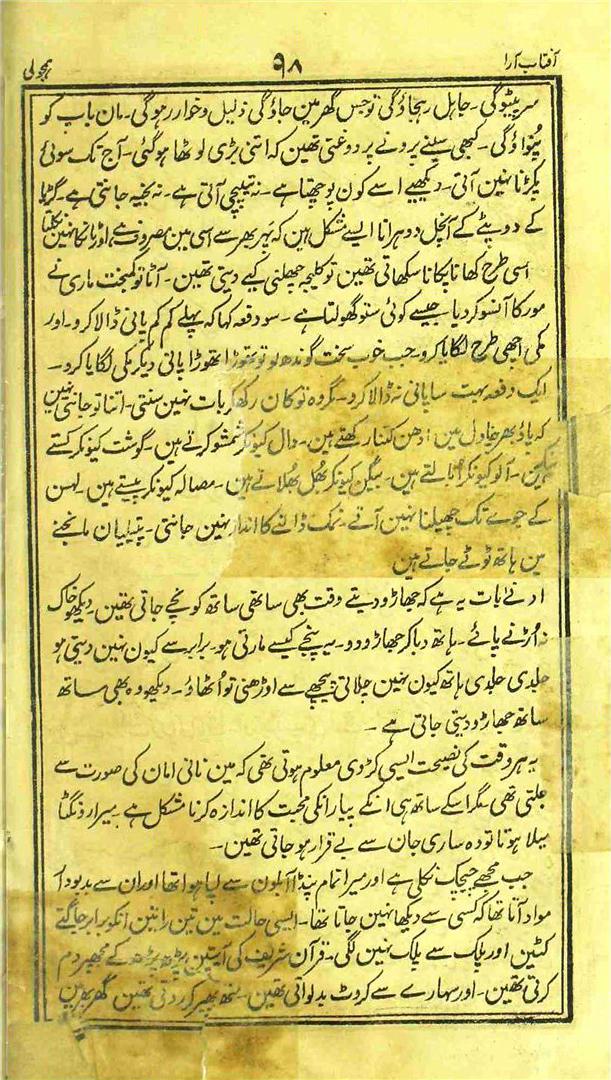 آفتاب آرا ۹۸ ہمجولی
سر پیٹوگی۔ جاہل رہجاؤگی تو جس گھر مین جاؤگی ذلیل و خوار رہوگی۔ مان باپ کو
پُنواؤگی۔ کبھی سینے پرونے پر دوغتی تھین کہ اتنی بڑی لوٹھا ہوگئی۔ آج تک سوئی
پکڑنا نہین آتی۔ دیکھیے اسے کون پوچھتا ہے۔ نہ تیپچی آتی ہے۔ نہ بخیہ جانتی ہے۔ گڑیا
کے دوپٹے کے آنچل دوہرانا ایسے مشکل ہین کہ پہر بھر سے اسی مین مصروف ہے اور ٹانکا نہین نکلتا
اسی طرح کھانا پکانا سکھاتی تھین تو کلیجہ چھلنی کیے دیتی تھین۔ آٹا تو کمبخت ماری نے
مور کا آنسو کر دیا جیسے کوئی ستو گھولتا ہے۔ سو دفعہ کہا کہ پہلے کم کم پانی ڈالا کرو۔ اور
مکی اچھی طرح لگایا کرو۔ جب خوب سخت گوندھ لو تو تھوڑا تھوڑا پانی دیکر مکی لگایا کرو۔
ایک دفعہ بہت سا پانی نہ ڈالا کرو۔ مگر وہ تو کان رکھکر بات نہین سنتی۔ اتنا تو جانتی نہین
کہ پاؤ بھر چاول مین ادھن کتنا رکھتے ہین۔ دال کیونکر شمشو کرتے ہین۔ گوشت کیونکر کستے
ہین۔ آلو کیونکر اُبالتے ہین۔ بیگن کیونکر بھُل بھُلاتے ہین۔ مصالہ کیونکر پیستے ہین۔ لہسن
کے جوے تک چھیلنا نہین آتے۔ نمک ڈالنے کا انداز نہین جانتی۔ پتیلیان مانجنے
مین ہاتھ ٹوٹے جاتے ہین
ادنےٰ بات یہ ہے کہ جھاڑو دیتے وقت بھی ساتھی ساتھ کونچے جاتی تھین۔ دیکھو خاک
نہ اُڑنے پائے۔ ہاتھ دبا کر جھاڑو دو۔ یہ پنجے کیسے مارتی ہو۔ برابر سے کیون نہین دیتی ہو
جلدی جلدی ہاتھ کیون نہین چلاتی۔ پیچھے سے اوڑھنی تو اُٹھاؤ۔ دیکھو وہ بھی ساتھ
ساتھ جھاڑو دیتی جاتی ہے۔
یہ ہر وقت کی نصیحت ایسی کڑوی معلوم ہوتی تھی کہ مین نانی امان کی صورت سے
جلتی تھی مگر اسکے ساتھ ہی انکے پیار انکی محبت کا اندازہ کرنا مشکل ہے۔ میرا رونگٹا
میلا ہوتا تو وہ ساری جان سے بے قرار ہو جاتی تھین۔
جب مجھے چیچک نکلی ہے اور میرا تمام پنڈا آبلون سے لپا ہوا تھا اور ان سے بدبو دار
مواد آتا تھا کہ کسی سے دیکھا نہین جاتا تھا۔ ایسی حالت مین تین راتین انکو برابر جاگتے
کٹین اور پلک سے پلک نہین لگی۔ قرآن شریف کی آیتین پڑھ پڑھ کے مجھپر دم
کرتی تھین۔ اور سہارے سے کروٹ بدلواتی تھین۔ منھ پھیر کر روتی تھین گھر بھر مین